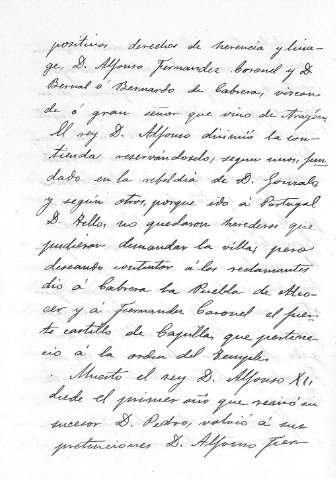 positivos derechos de herencia y lina-
ge, D. Alfonso Fernandez Coronel y D.
Bernal ó Bernardo de Cabrera, vizcon-
de ó gran señor que vino de Aragón.
El rey D. Alfonso dirimió la con-
tienda reservándoselo, segun unos, fun
dado en la rebeldia de D. Gonzalo
y según otros, porque ido á Portugal
D. Tello, no quedaron herederos que
pudieran demandar la villa; pero
deseando contentar á los reclamantes
dió á Cabrera la Puebla de Alco-
cer y á Fernandez Coronel el fuer-
te castillo de Capilla, que pertene-
ció á la orden del Temple.
Muerto el rey D. Alfonso XI,
desde el primer año que reinó su
sucesor D. Pedro, volvió á sus
pretenciones D. Alfonso Fer-